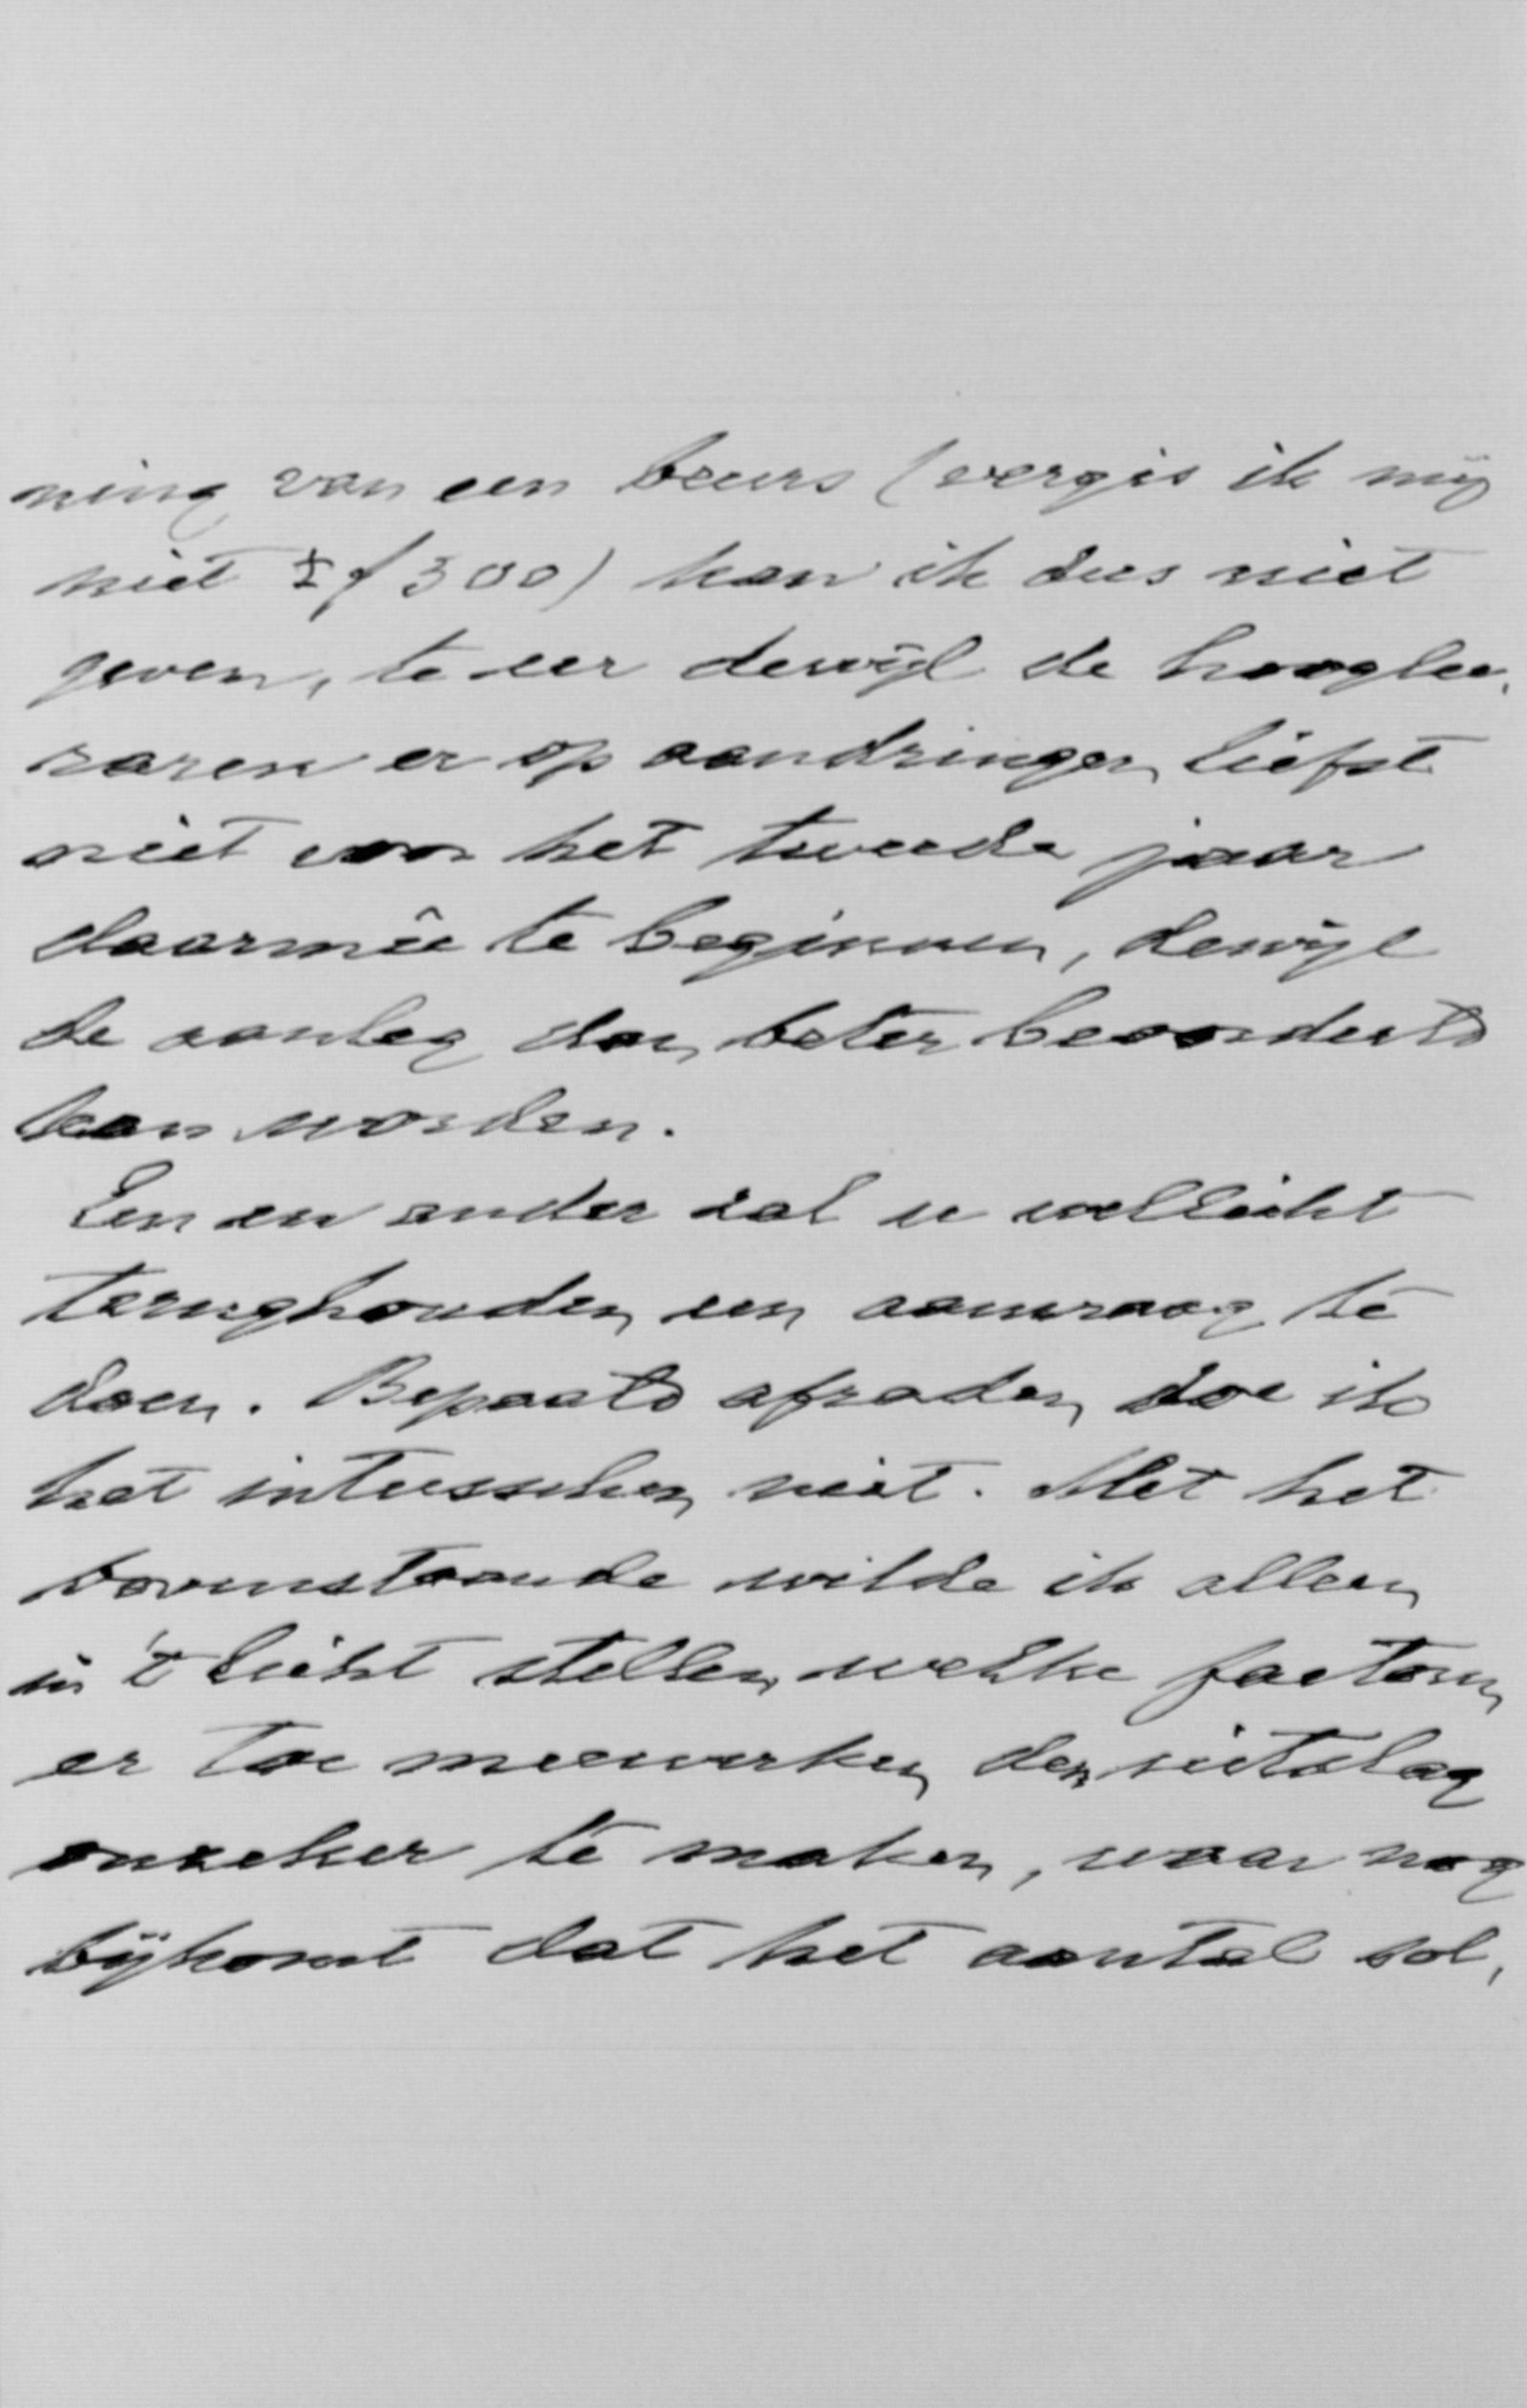 ning van een beurs (vergis ik mij
niet ± f 300) kan ik dus niet
geven, te eer dewijl de hooglee,
raren er op aandringen liefst
niet voor het tweede jaar
daarmêe te beginnen, dewijl
de aanleg dan beter beoordeeld
kan worden.
Een en ander zal u wellicht
terughouden een aanvraag te
doen. Bepaald afraden doe ik
het intusschen niet. Met het
bovenstaande wilde ik alleen
in 't licht stellen welke factoren
er toe meewerken den uitslag
onzeker te maken, waar nog
bijkomt dat het aantal sol,